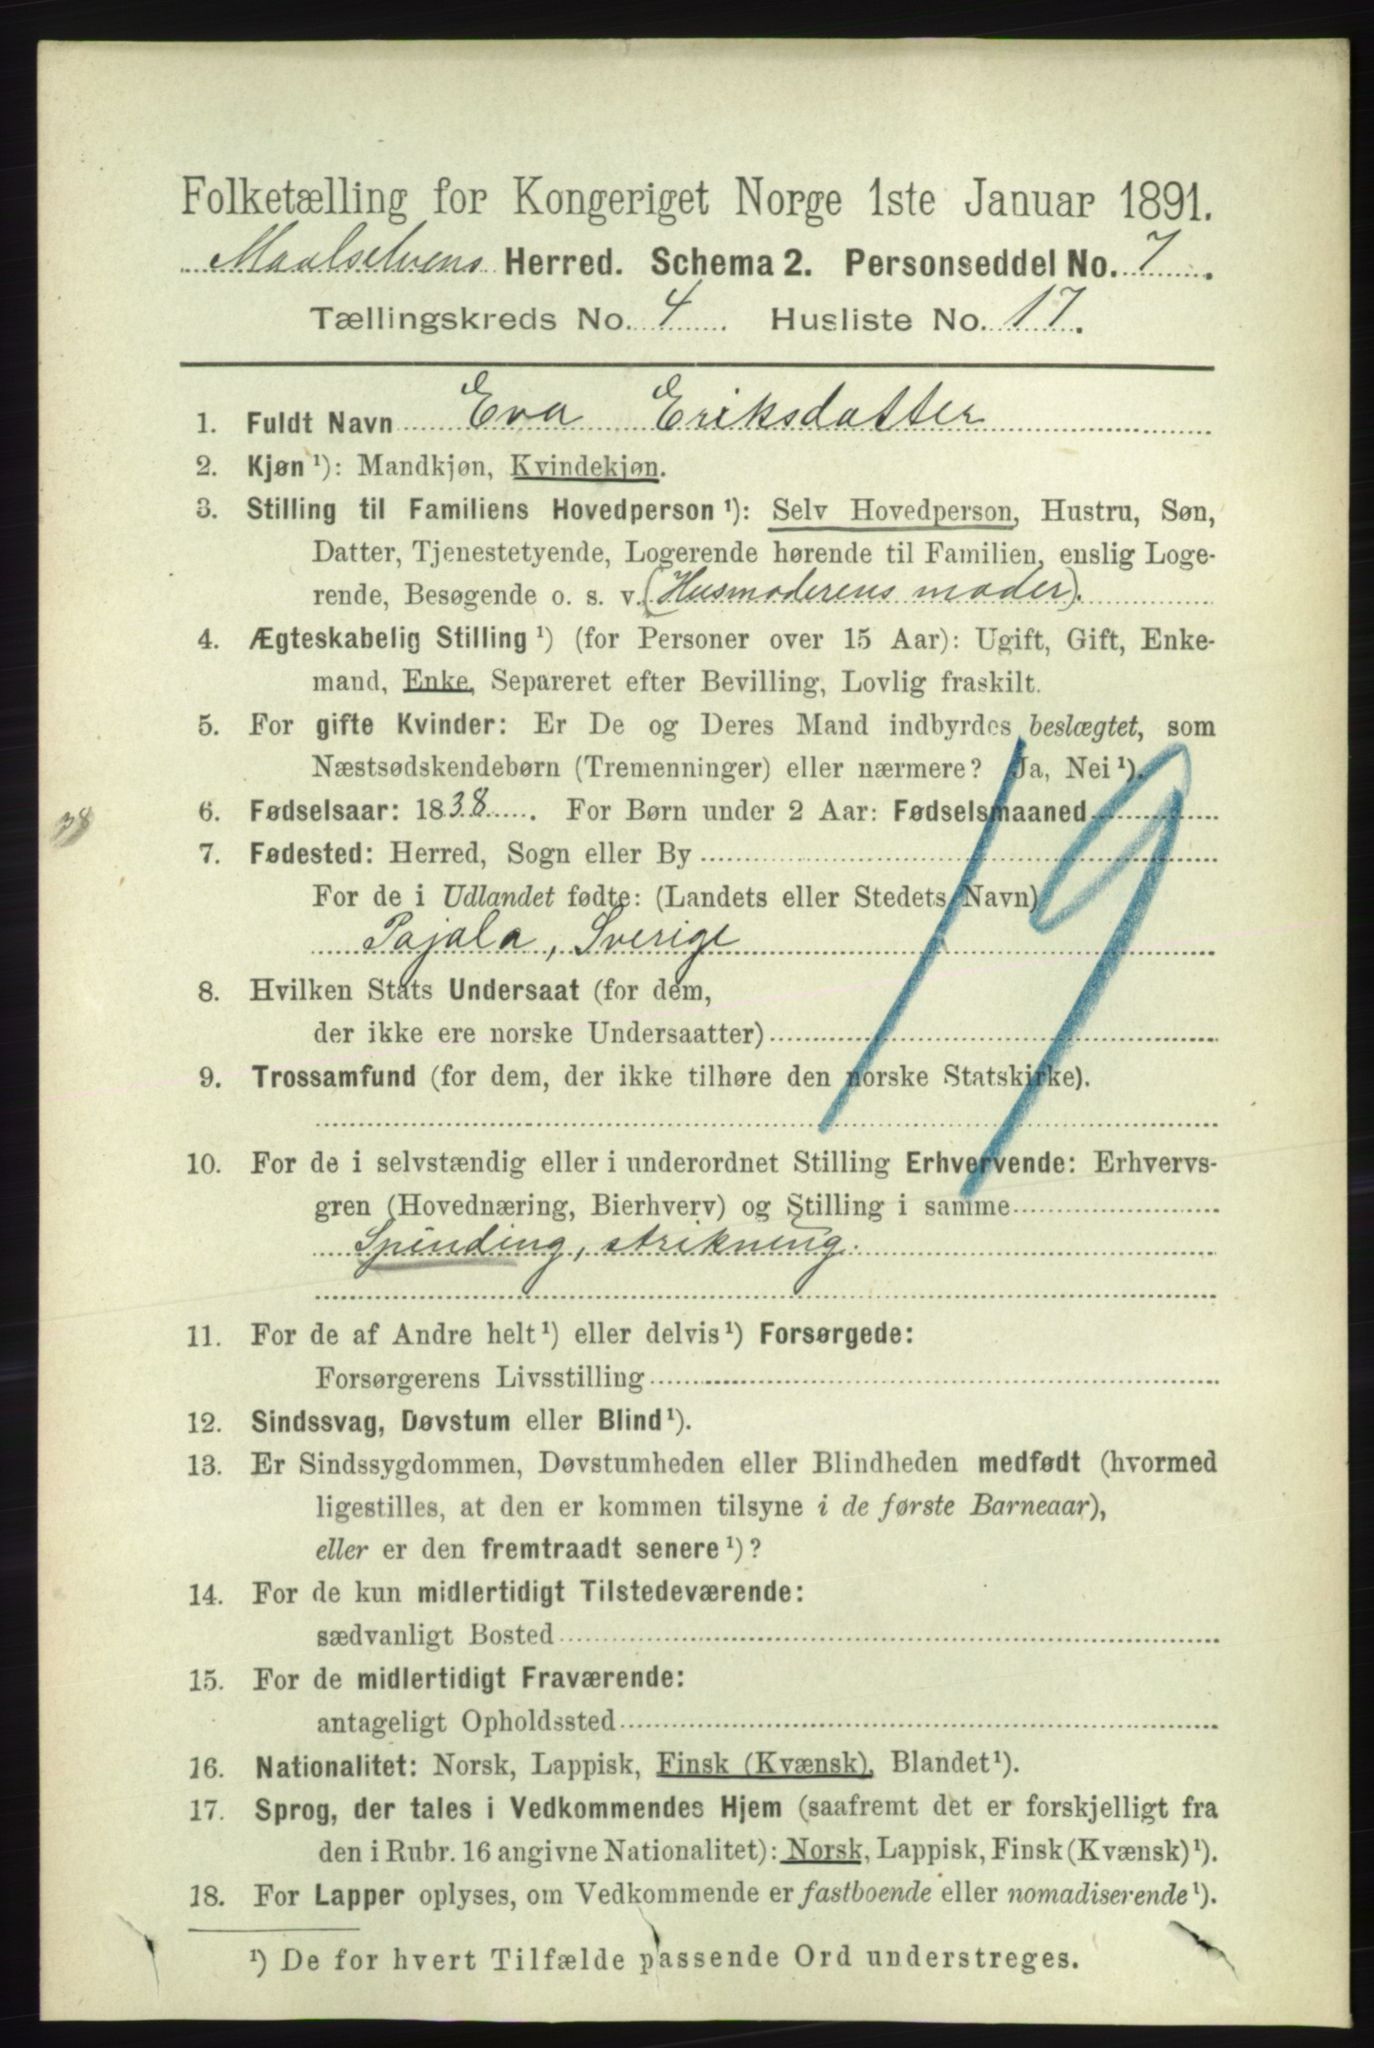 Folketælling for Kongeriget Norge 1ste Januar 1891.
Maalselvens Herred. Schema 2. Personseddel No. 7.
Tællingskreds No. 4 Husliste No. 17.
1. Fuldt Navn Eva Eriksdatter
2. Kjøn¹): Mandkjøn, Kvindekjøn.
3. Stilling til Familiens Hovedperson¹): Selv Hovedperson, Hustru, Søn,
Datter, Tjenestetyende, Logerende hørende til Familien, enslig Loge-
rende, Besøgende o. s. v. (Husmoderens moder).
4. Ægteskabelig Stilling¹) (for Personer over 15 Aar): Ugift, Gift, Enke-
mand, Enke, Separeret efter Bevilling, Lovlig fraskilt.
5. For gifte Kvinder: Er De og Deres Mand indbyrdes beslægtet, som
Næstsødskendebørn (Tremenninger) eller nærmere? Ja, Nei¹).
38
6. Fødselsaar: 1838. For Børn under 2 Aar: Fødselsmaaned
7. Fødested: Herred, Sogn eller By
For de i Udlandet fødte: (Landets eller Stedets Navn)
Pajala, Sverige
19
8. Hvilken Stats Undersaat (for dem,
der ikke ere norske Undersaatter)
9. Trossamfund (for dem, der ikke tilhøre den norske Statskirke).
10. For de i selvstændig eller i underordnet Stilling Erhvervende: Erhvervs-
gren (Hovednæring, Bierhverv) og Stilling i samme
Spinding, strikning.
11. For de af Andre helt¹) eller delvis¹) Forsørgede:
Forsørgerens Livsstilling
12. Sindssvag, Døvstum eller Blind¹).
13. Er Sindssygdommen, Døvstumheden eller Blindheden medfødt (hvormed
ligestilles, at den er kommen tilsyne i de første Barneaar),
eller er den fremtraadt senere¹)?
14. For de kun midlertidigt Tilstedeværende:
sædvanligt Bosted
15. For de midlertidigt Fraværende:
antageligt Opholdssted
16. Nationalitet: Norsk, Lappisk, Finsk (Kvænsk), Blandet¹).
17. Sprog, der tales i Vedkommendes Hjem (saafremt det er forskjelligt fra
den i Rubr. 16 angivne Nationalitet): Norsk, Lappisk, Finsk (Kvænsk)¹).
18. For Lapper oplyses, om Vedkommende er fastboende eller nomadiserende¹).
¹) De for hvert Tilfælde passende Ord understreges.